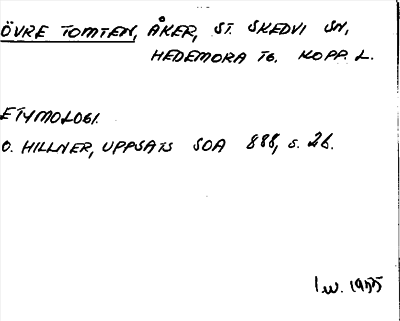 ÖVRE TOMTEN, ÅKER, ST. SKEDVI SN,
HEDEMORA TG. KOPP. L.
ETYMOLOGI.
O. HILLNER, UPPSATS SOA 888, S. 26.
1955